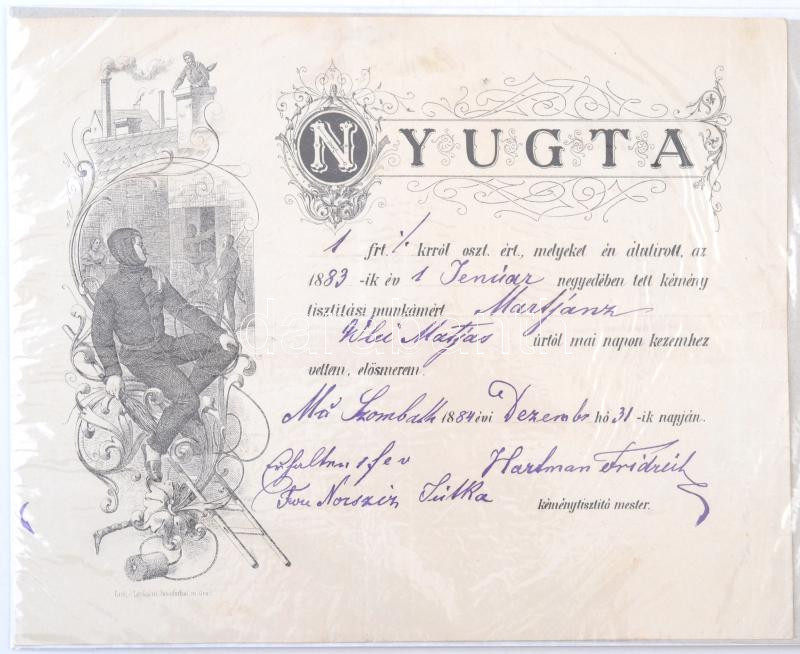 NYUGTA
1 frt. % krról oszt. ért., melyeket én álulirott, az
1883-ik év 1 Jenúar negyedében tett kémény
tisztitási munkámért Martjánz
Matjas úrtól mai napon kezemhez
vettem, elösmerem.
Szombath 1884 évi Dezember hó 31-ik napján.
Hartman Fridreich
kéménytisztitó mester.